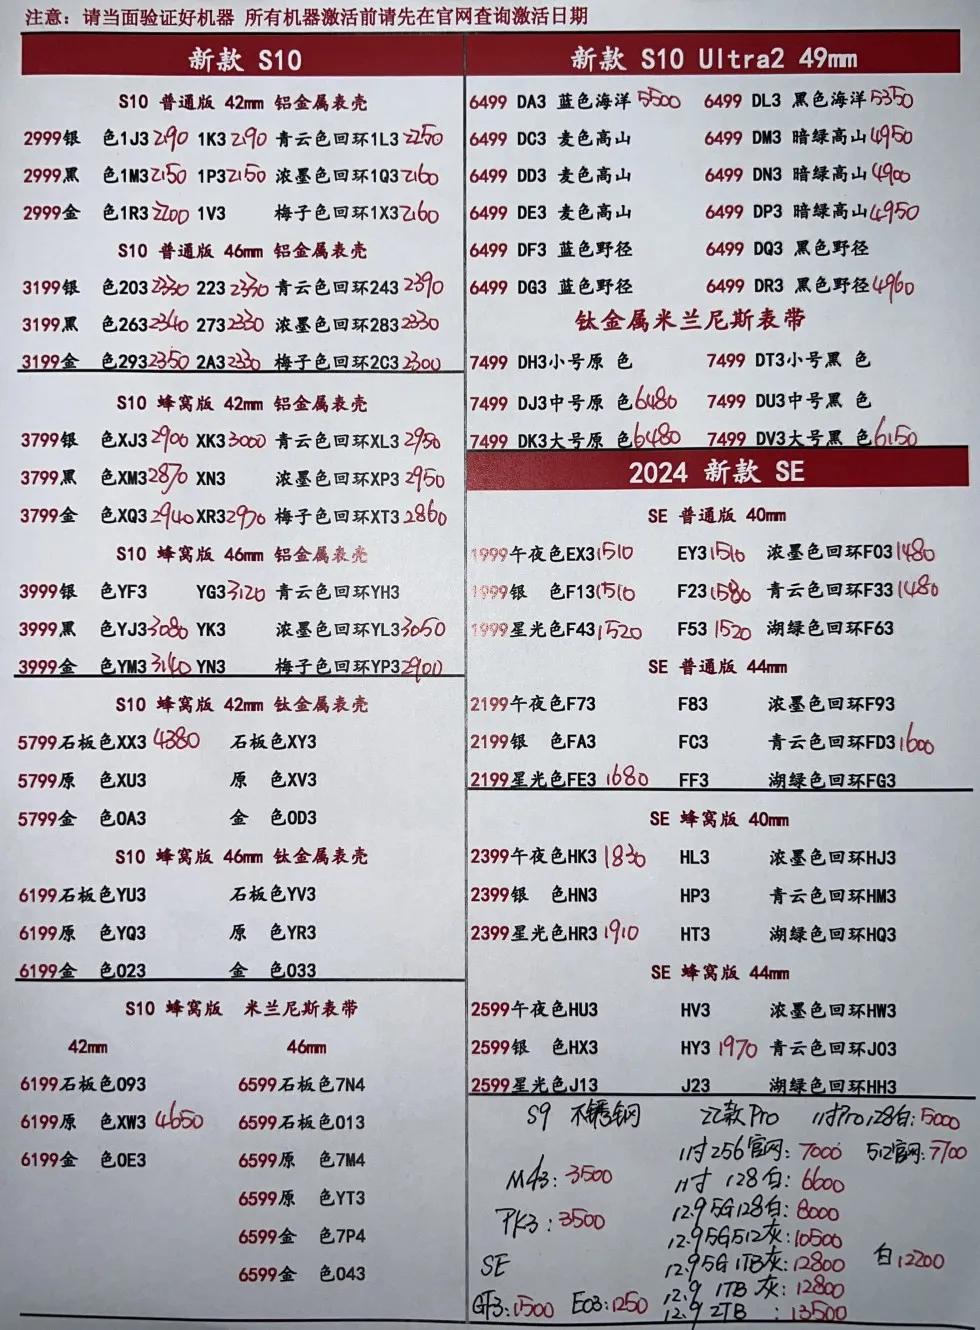 注意：请当面验证好机器 所有机器激活前请先在官网查询激活日期
新款 S10
S10 普通版 42mm 铝金属表壳
2999银 色1J3 2190 1K3 2190 青云色回环1L3 2250
2999黑 色1M3 2150 1P3 2150 浓墨色回环1Q3 2160
2999金 色1R3 2200 1V3 梅子色回环1X3 2160
S10 普通版 46mm 铝金属表壳
3199银 色203 2330 223 2330 青云色回环243 2390
3199黑 色263 2340 273 2330 浓墨色回环283 2330
3199金 色293 2350 2A3 2330 梅子色回环2C3 2300
S10 蜂窝版 42mm 铝金属表壳
3799银 色XJ3 2900 XK3 3000 青云色回环XL3 2950
3799黑 色XM3 2870 XN3 浓墨色回环XP3 2950
3799金 色XQ3 2940 XR3 2970 梅子色回环XT3 2860
S10 蜂窝版 46mm 铝金属表壳
3999银 色YF3 YG3 3120 青云色回环YH3
3999黑 色YJ3 3080 YK3 浓墨色回环YL3 3050
3999金 色YM3 3140 YN3 梅子色回环YP3 2900
S10 蜂窝版 42mm 钛金属表壳
5799石板色XX3 4380 石板色XY3
5799原 色XU3 原 色XV3
5799金 色0A3 金 色0D3
S10 蜂窝版 46mm 钛金属表壳
6199石板色YU3 石板色YV3
6199原 色YQ3 原 色YR3
6199金 色023 金 色033
S10 蜂窝版 米兰尼斯表带
42mm 46mm
6199石板色093 6599石板色7N4
6199原 色XW3 4650 6599石板色013
6199金 色0E3 6599原 色7M4
6599原 色YT3
6599金 色7P4
6599金 色043
新款 S10 Ultra2 49mm
6499 DA3 蓝色海洋 5500 6499 DL3 黑色海洋 5350
6499 DC3 麦色高山 6499 DM3 暗绿高山 4950
6499 DD3 麦色高山 6499 DN3 暗绿高山 4900
6499 DE3 麦色高山 6499 DP3 暗绿高山 4950
6499 DF3 蓝色野径 6499 DQ3 黑色野径
6499 DG3 蓝色野径 6499 DR3 黑色野径 4960
钛金属米兰尼斯表带
7499 DH3小号原 色 7499 DT3小号黑 色
7499 DJ3中号原 色 6480 7499 DU3中号黑 色
7499 DK3大号原 色 6480 7499 DV3大号黑 色 6150
2024 新款 SE
SE 普通版 40mm
1999午夜色EX3 1510 EY3 1510 浓墨色回环F03 1480
1999银 色F13 1510 F23 1580 青云色回环F33 1480
1999星光色F43 1520 F53 1520 湖绿色回环F63
SE 普通版 44mm
2199午夜色F73 F83 浓墨色回环F93
2199银 色FA3 FC3 青云色回环FD3 1600
2199星光色FE3 1680 FF3 湖绿色回环FG3
SE 蜂窝版 40mm
2399午夜色HK3 1830 HL3 浓墨色回环HJ3
2399银 色HN3 HP3 青云色回环HM3
2399星光色HR3 1910 HT3 湖绿色回环HQ3
SE 蜂窝版 44mm
2599午夜色HU3 HV3 浓墨色回环HW3
2599银 色HX3 HY3 1970 青云色回环J03
2599星光色J13 J23 湖绿色回环HH3
S9 不锈钢 22款Pro 11寸Pro128白：5000
11寸256官网：7000 512官网：7700
M43：3500 11寸 128白：6600
PK3：3500 12.9 5G128白：8000
12.9 5G512灰：10500
SE 12.9 5G 1TB灰：12800 白12200
12.9 1TB 灰：12800
GF3：1500 E03：1250 12.9 2TB ：13500